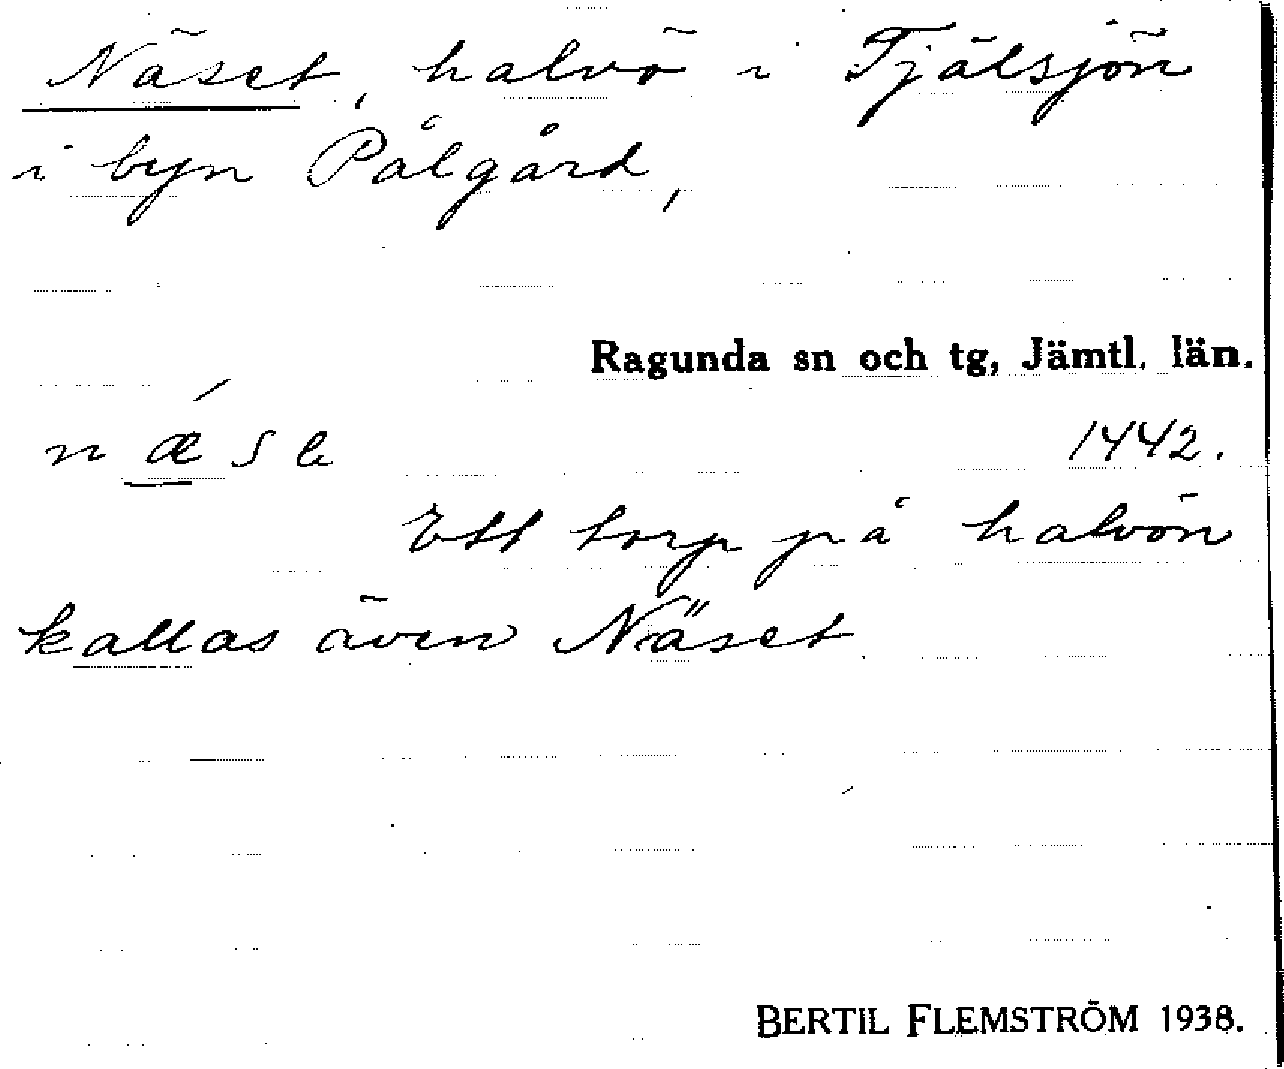 Näset, halvö i Fjälsjön
i byn Pålgård,
Ragunda sn och tg, Jämtl. län.
1442.
Ett torp på halvön
kallas även Näset
BERTIL FLEMSTRÖM 1938.